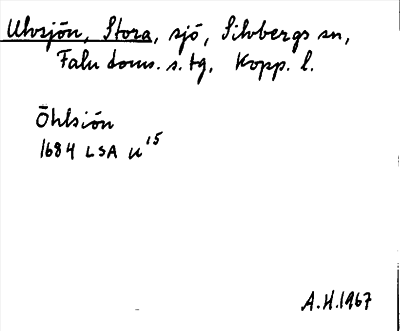 Ulvsjön, Stora, sjö, Silvbergs sn,
Falu doms. s. tg, Kopp. l.
Öhlsiön
1684 LSA u 15
A.H.1967